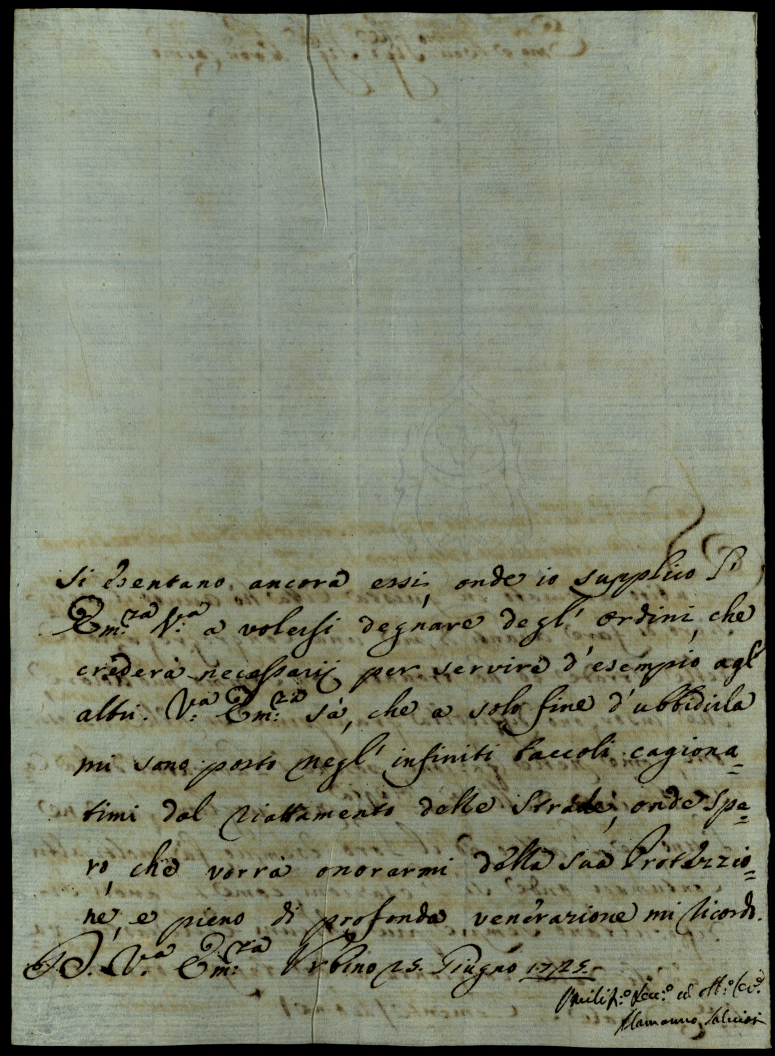 si esentano ancora essi, onde io supplico l'
Em.za V.a a volersi degnare degl' ordini, che
crederà necessarij per servire d'esempio agl'
altri. V.a Em.za sà, che a solo fine d'ubbidirla
mi sono posto negl' infiniti taccoli cagiona=
timi dal riattamento delle strade, onde spe=
ro, che vorrà onorarmi della sua Protezzio=
ne, e pieno di profonda venerazione mi ricordo.
D. V.a Em.za Urbino 25. Giugno 1725.
Alamanno Salviati